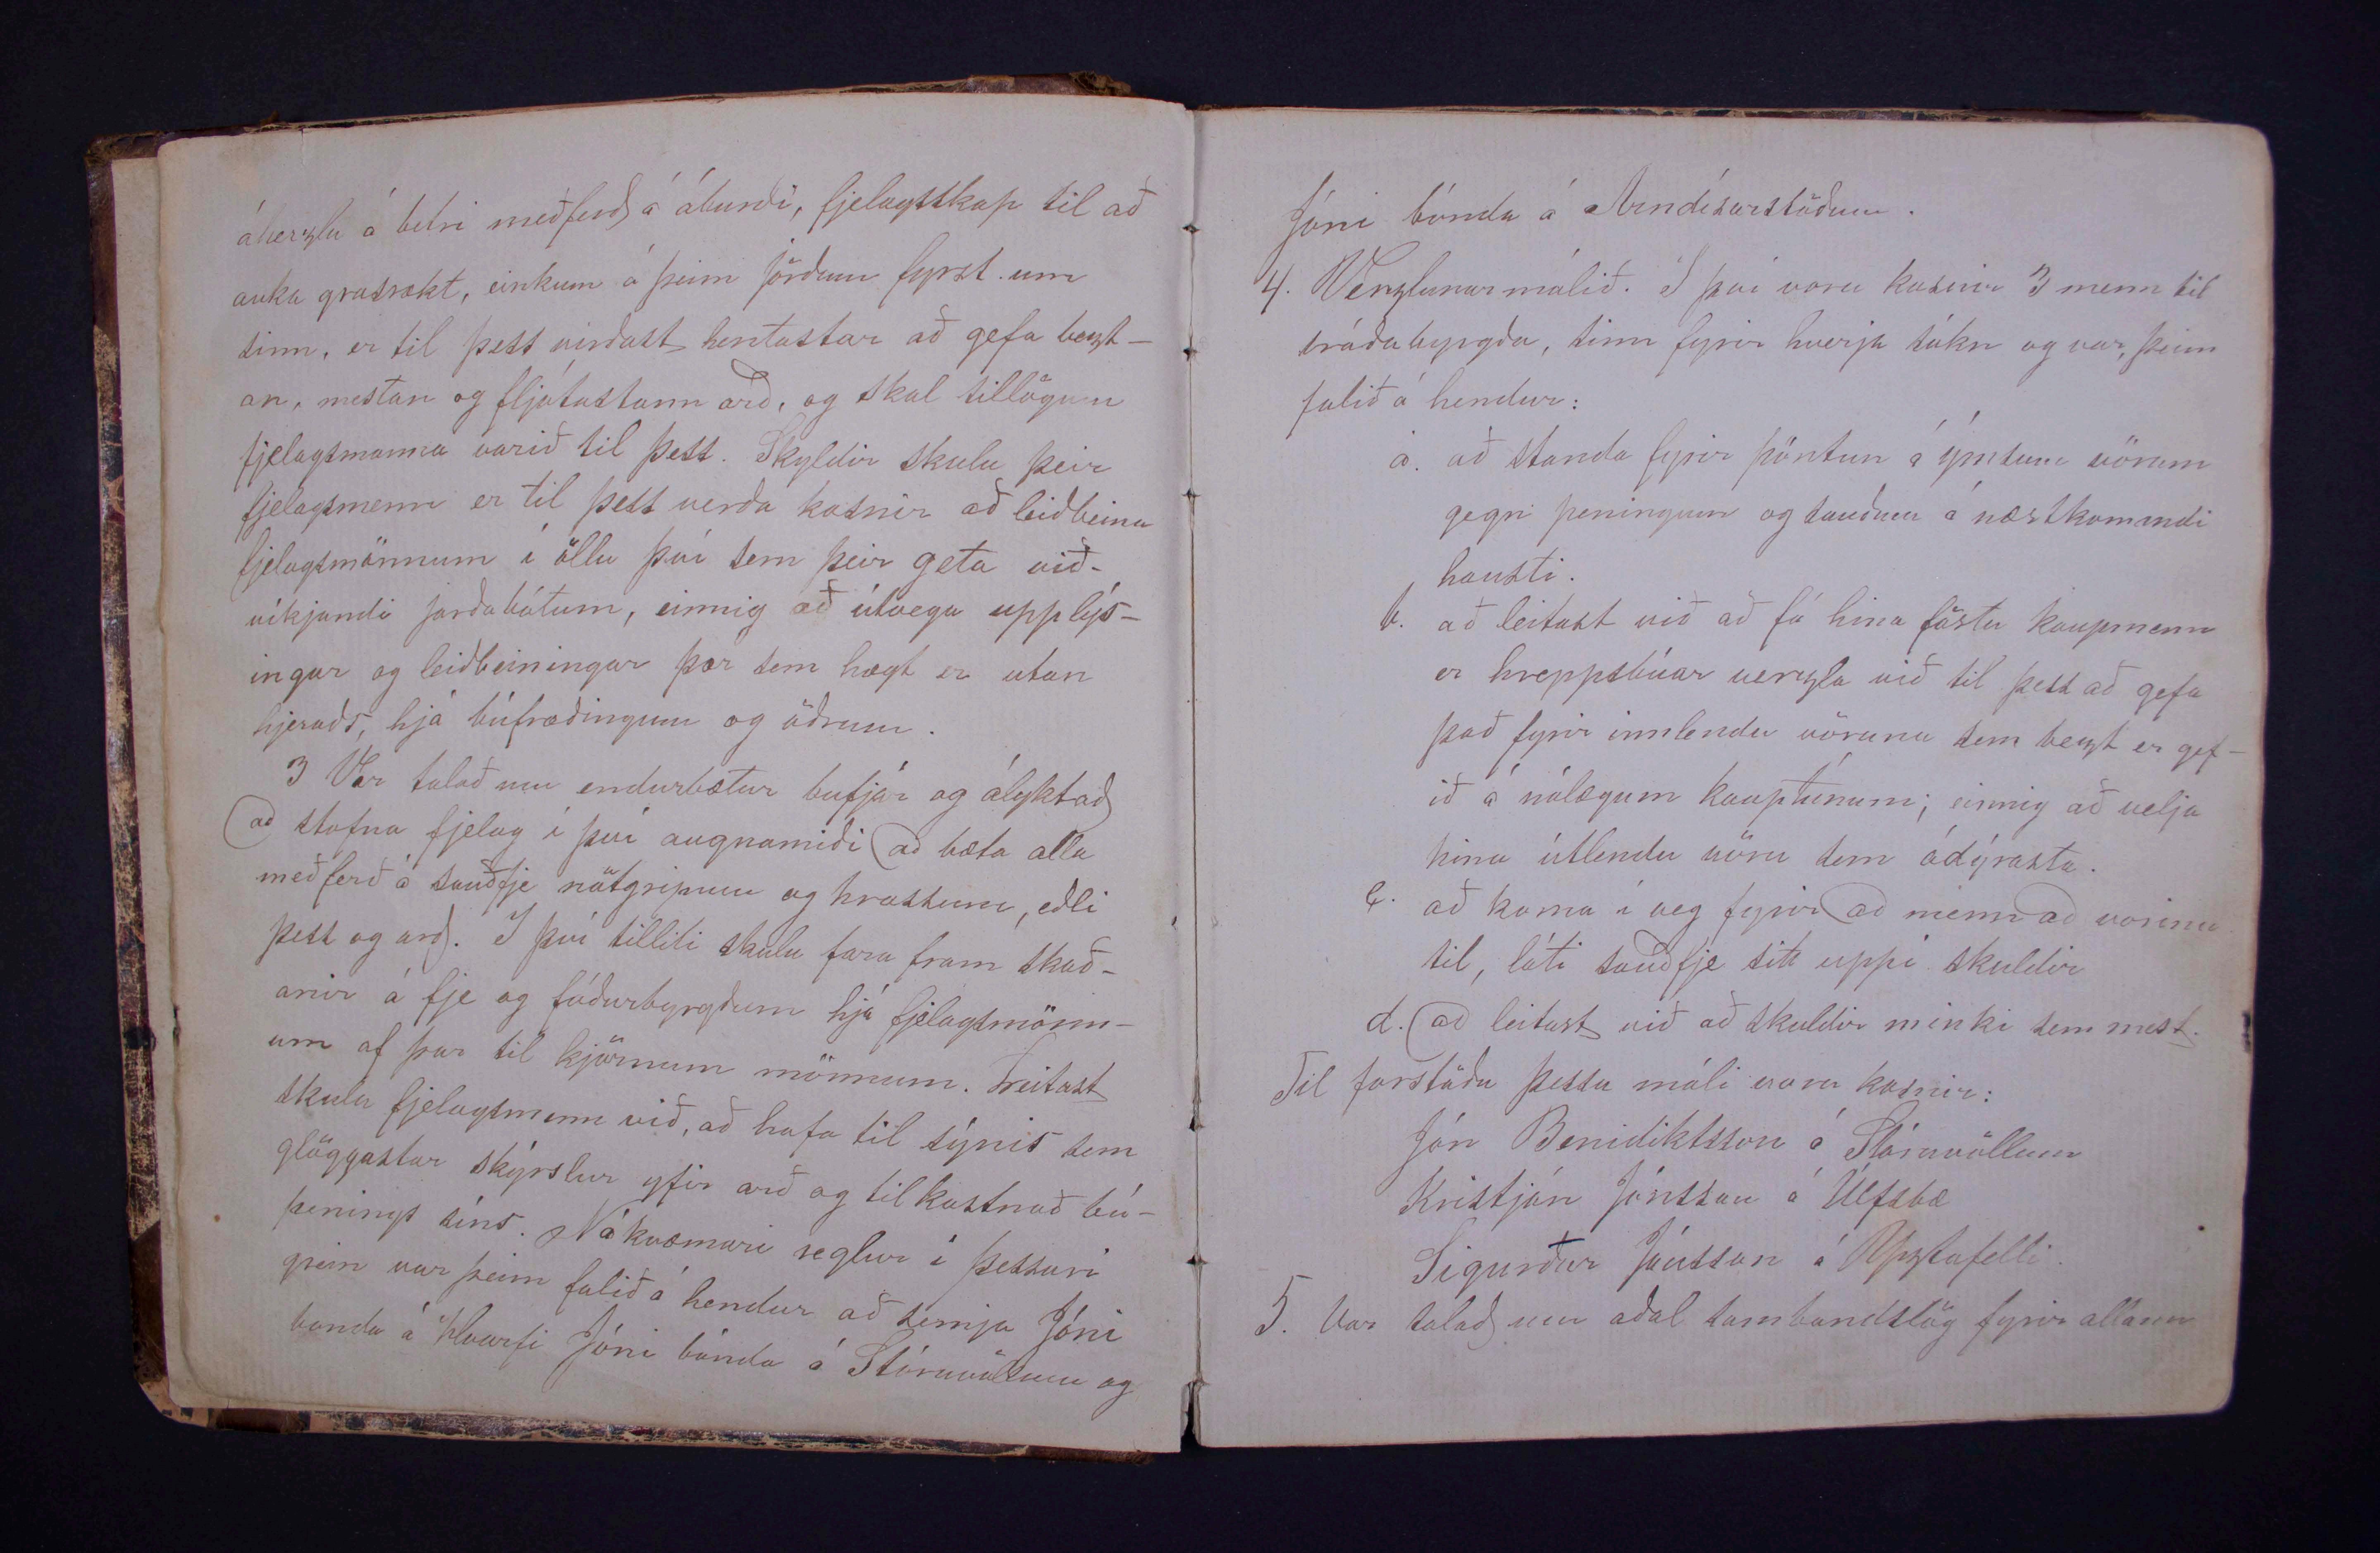 áherzlu á betri meðferð á áburði, fjelagsskap til að
auka grasrækt, einkum á þeim jörðum fyrst um
sinn, er til þess virðast hentastar að gefa bezt-
an, mestan og fljótastann arð, og skal tillögum
fjelagsmanna varið til þess. Skyldir skulu þeir
fjelagsmenn er til þess verða kosnir að leiðbeina
fjelagsmönnum í öllu því sem þeir geta við-
víkjandi jarðabótum, einnig að útvega upplýs-
ingar og leiðbeiningar þar sem hægt er utan
hjeraðs, hjá búfræðingum og öðrum.
3 Var talað um endurbætur bufjár og ályktað
að stofna fjelag í því augnamiði að bæta alla
meðferð á sauðfje nötgripum og hrossum, eðli
þess og arð. I því tilliti skulu fara fram skoð-
anir á fje og fóðurbyrgðum hjá fjelagsmönn-
um af þar til kjörnum mönnum. Leitast
skulu fjelagsmenn við, að hafa til sýnis sem
glöggastar skýrslur yfir arð og tilkostnað bú-
penings síns. Nákvæmari reglur í þessari
grein var þeim falið á hendur að semja Jóni
bonda á Hvarfi Jóni bónda á Stóruvöllum og
Jóni bónda á Arndísarstöðum.
4. Verzlunarmálið. I því voru kosnir 3 menn til
bráðabyrgða, sinn fyrir hverja sókn og var þeim
falið á hendur:
a. að standa fyrir pöntun á ýmsum vörum
gegn peningum og sauðum á næstkomandi
hausti.
b. að leitast við að fá hina föstu kaupmenn
er hreppsbúar verzla við til þess að gefa
það fyrir innlendu vöruna sem bezt er gef-
ið á nálægum kauptúnum; einnig að velja
hina útlendu vöru sem ódýrasta.
c. að koma í veg fyrir að menn að vorinu
til, láti sauðfje sitt uppí skuldir
d. að leitast við að skuldir minki sem mest.
Til forstöðu þessu máli voru kosnir:
Jón Benidiktsson á Stóruvöllum
Kristján Jónsson á Úlfsbæ
Sigurður Jónsson á Yþstafelli.
5. Var talað um aðal sambandslög fyrir allann